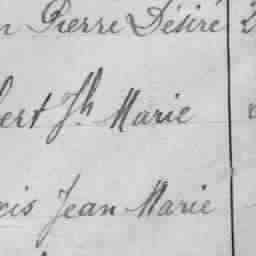 n Pierre Désiré 2
bert Jh Marie
cis Jean Marie